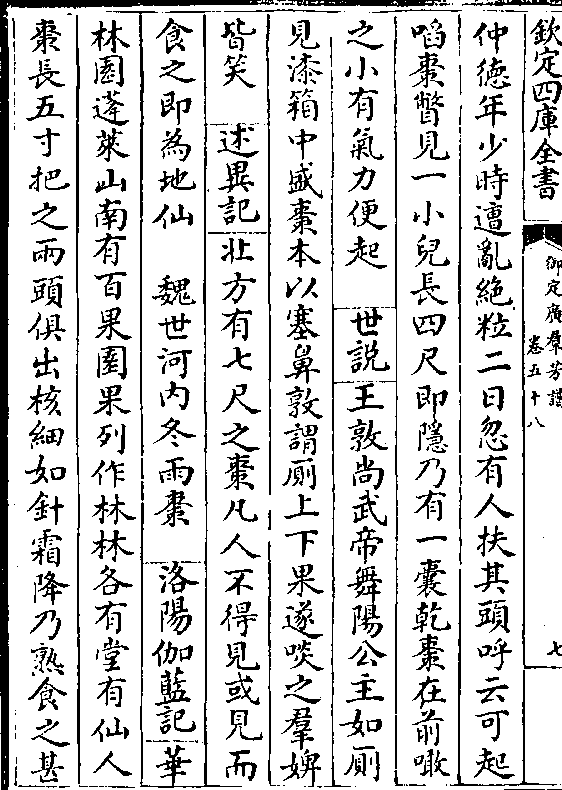 欽定四庫全書
御定廣羣芳譜
卷五十八
七
仲德年少時遭亂絶粒二日忽有人扶其頭呼云可起
啗棗瞥見一小兒長四尺即隱乃有一囊乾棗在前噉
之小有氣力便起 世説 王敦尚武帝舞陽公主如厠
見漆箱中盛棗本以塞鼻敦謂厠上下果遂啖之羣婢
皆笑 述異記 北方有七尺之棗凡人不得見或見而
食之即為地仙 魏世河内冬雨棗 洛陽伽藍記 華
林園蓬萊山南有百果園果列作林林各有堂有仙人
棗長五寸把之兩頭俱出核細如針霜降乃熟食之甚